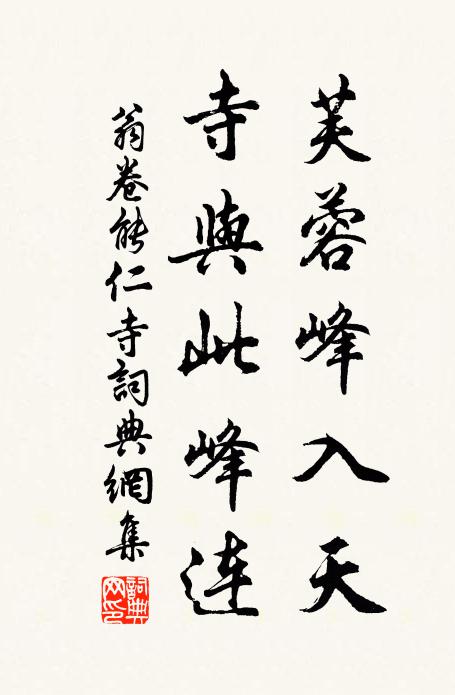 芙蓉峰入天
寺與此峰連
翁卷能仁寺詞典網集
詞典網印